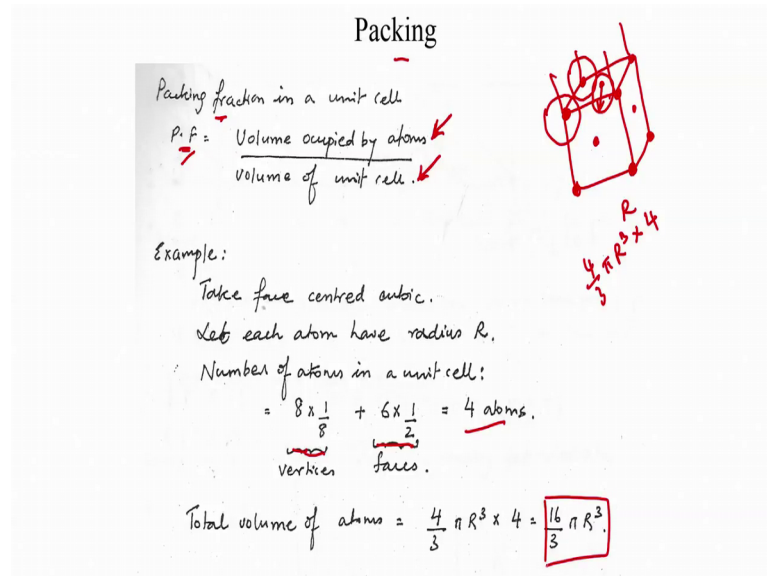 Packing
Packing fraction in a unit cell
P.f = Volume ocupied by atoms
volume of unit cell.
R
4/3 π R³ × 4
Example:
Take face centred cubic.
Let each atom have radius R.
Number of atoms in a unit cell:
= 8 × 1/8 + 6 × 1/2 = 4 atoms.
vertices faces.
Total volume of atoms = 4/3 π R³ × 4 = 16/3 π R³.